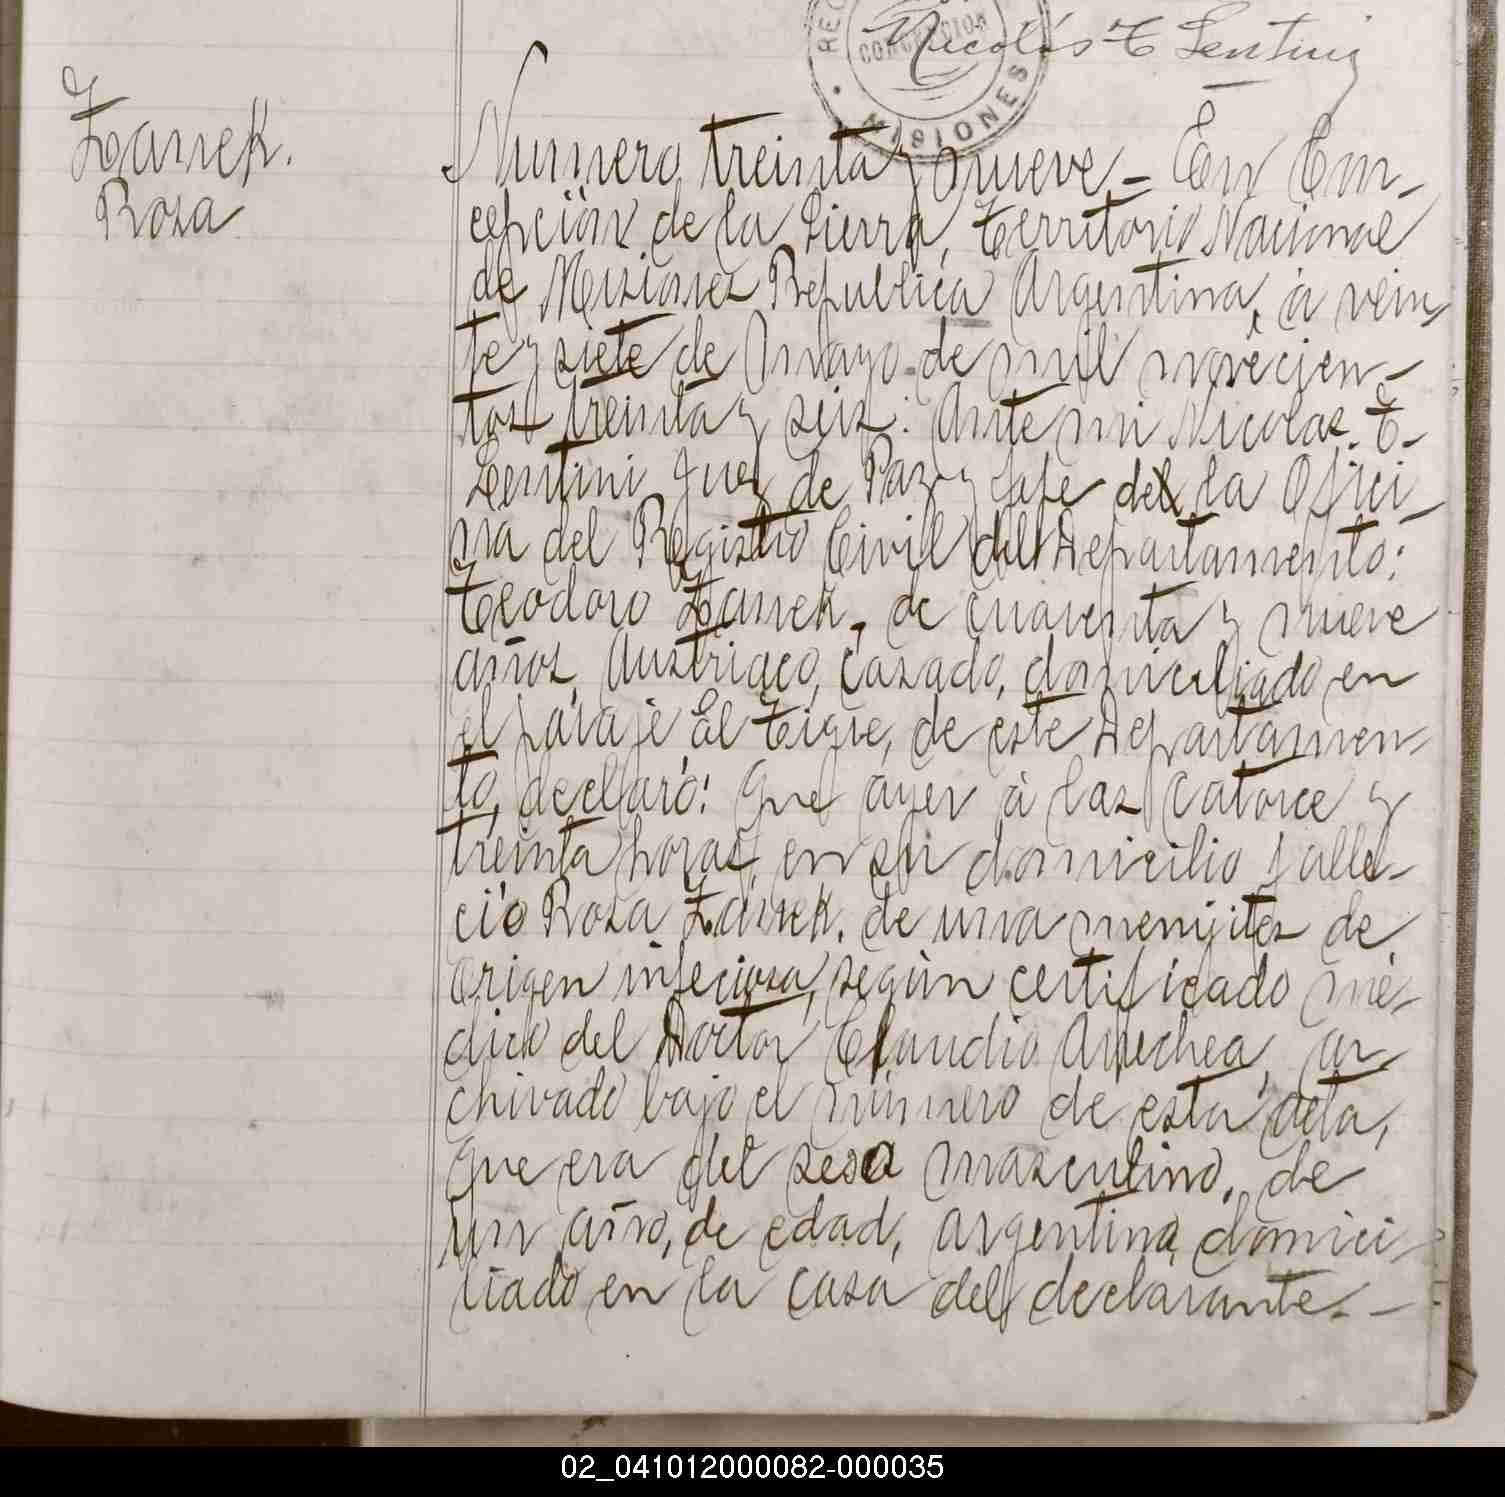 Nicolás T Lentini
CONCEPCION
MISIONES
Zanek.
Rosa
Numero treinta y nueve - En Con-
cepción de la Sierra, Territorio Nacional
de Misiones Republica Argentina, á vein
te y siete de Mayo de mil novecien-
tos treinta y seis: Ante mi Nicolas T-
Lentini Juez de Paz y Jefe del la Ofici-
na del Registro Civil del Departamento:
Teodoro Zanek, de cuarenta y nueve
años, Austriaco, casado, domiciliado en
el paraje El Tigre, de este Departamen-
to, declaró: Que ayer á las catorce y
treinta horas, en su domicilio falle-
ció Rosa Zanek. de una menijites de
origen infeciosa, según certificado mé-
dico del Doctor Claudio Arrechea, ar-
chivado bajo el número de esta acta,
que era del seso masculino, de
un año, de edad, argentina, domici-
liado en la casa del declarante. -
02_041012000082-000035